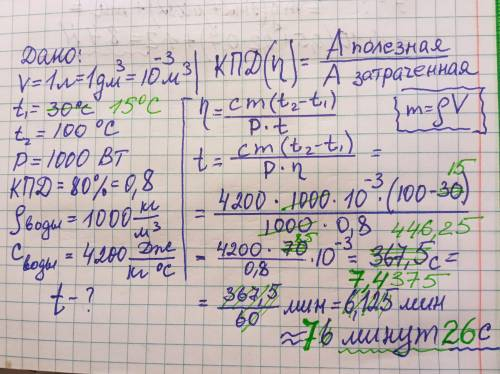 Дано:
V = 1л = 1дм³ = 10⁻³ м³
t₁ = 30°С 15°С
t₂ = 100 °С
P = 1000 ВТ
КПД = 80% = 0,8
ρводы = 1000 кг/м³
Cводы = 4200 Дж/кг °С
t - ?
КПД (η) = A полезная / A затраченная
η = cm(t₂ - t₁) / P · t
m = ρV
t = cm(t₂ - t₁) / P · η =
= 4200 · 1000 · 10⁻³ · (100 - 30) 15 / 1000 · 0,8
446,25
= 4200 · 70 85 / 0,8 · 10⁻³ = 367,5 с =
7,4375
= 367,5 / 60 мин = 6,125 мин
≈ 76 минут 26 с